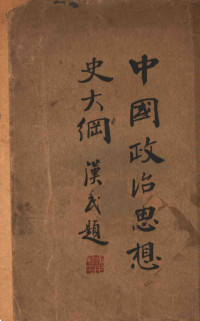 中國政治思想
史大綱
漢民題